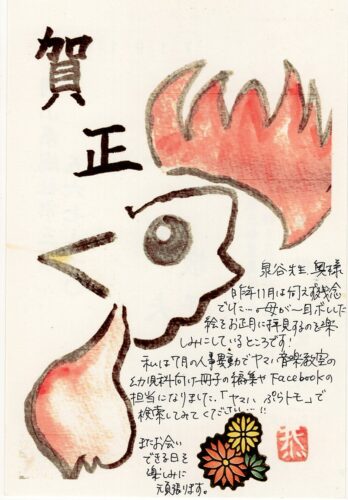 賀
正
泉谷先生 奥様
昨年11月は伺えず残念
でした…。母が一目ボレした
絵をお正月に拝見するのを楽
しみにしているところです!
私は7月の人事異動でヤマハ音楽教室の
幼児科向け冊子の編集やFacebookの
担当になりました、「ヤマハ ぷらトモ」で
検索してみてください!!
またお会い
できる日を
楽しみに
頑張ります。